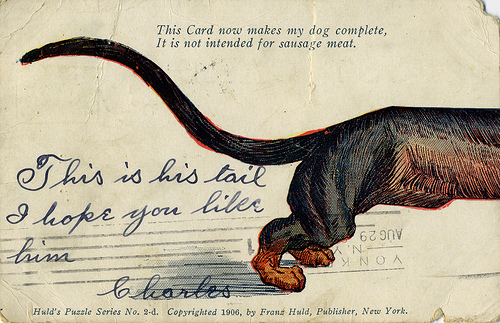 This Card now makes my dog complete,
It is not intended for sausage meat.
This is his tail
I hope you like
him
Charles
YONK
N.
AUG 29
Huld's Puzzle Series No. 2-d. Copyrighted 1906, by Franz Huld, Publisher, New York.